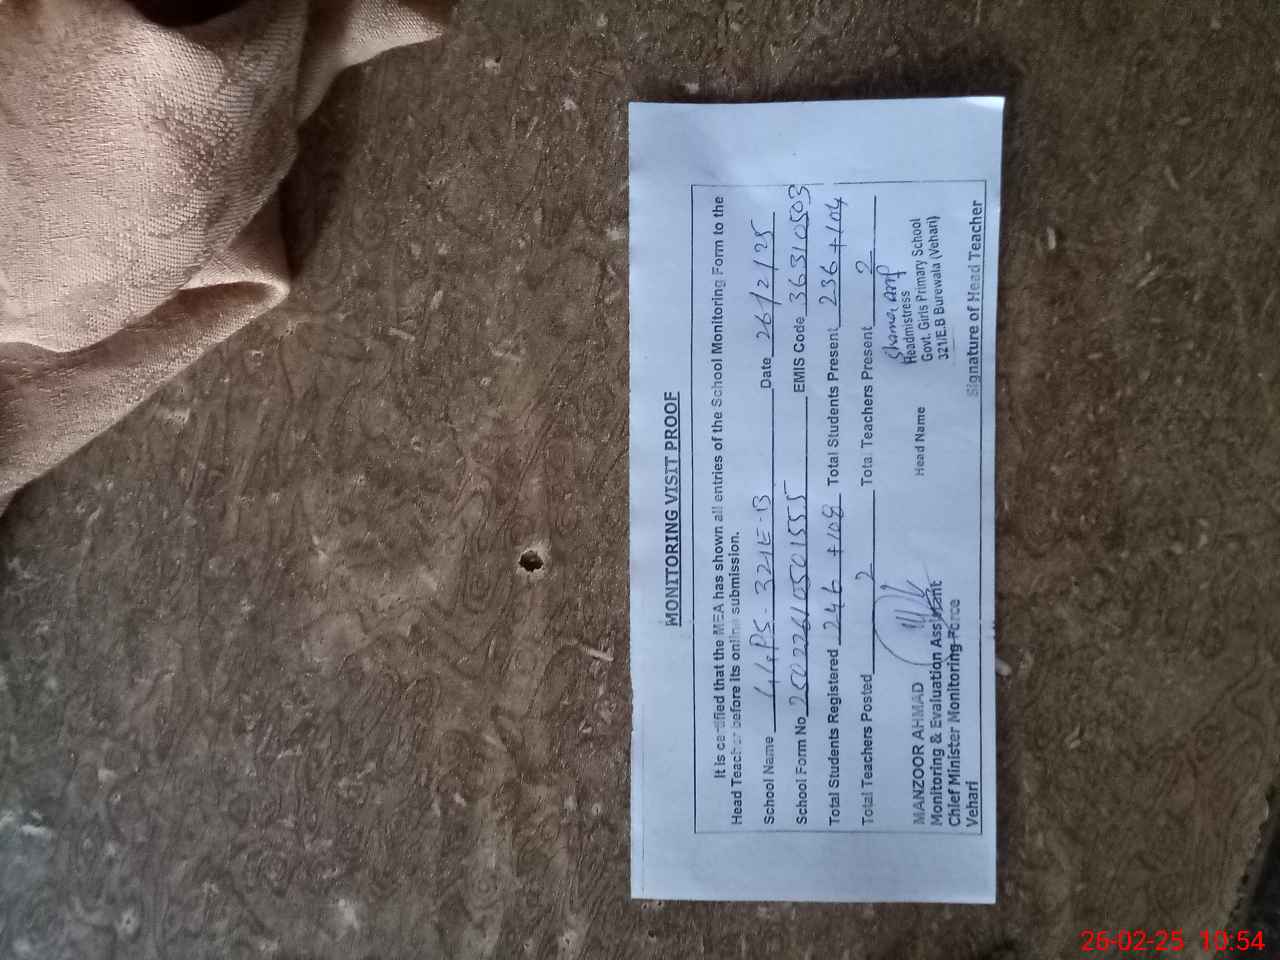 MONITORING VISIT PROOF
It is certified that the MEA has shown all entries of the School Monitoring Form to the
Head Teacher before its online submission.
School Name GGPS - 321E-B Date 26/2/25
School Form No 25022610501555 EMIS Code 36310503
Total Students Registered 246 +108 Total Students Present 236 +104
Total Teachers Posted 2 Total Teachers Present 2
MANZOOR AHMAD
Monitoring & Evaluation Assistant
Chief Minister Monitoring Force
Vehari
Head Name
Headmistress
Govt. Girls Primary School
321/E.B Burewala (Vehari)
Signature of Head Teacher
26-02-25 10:54